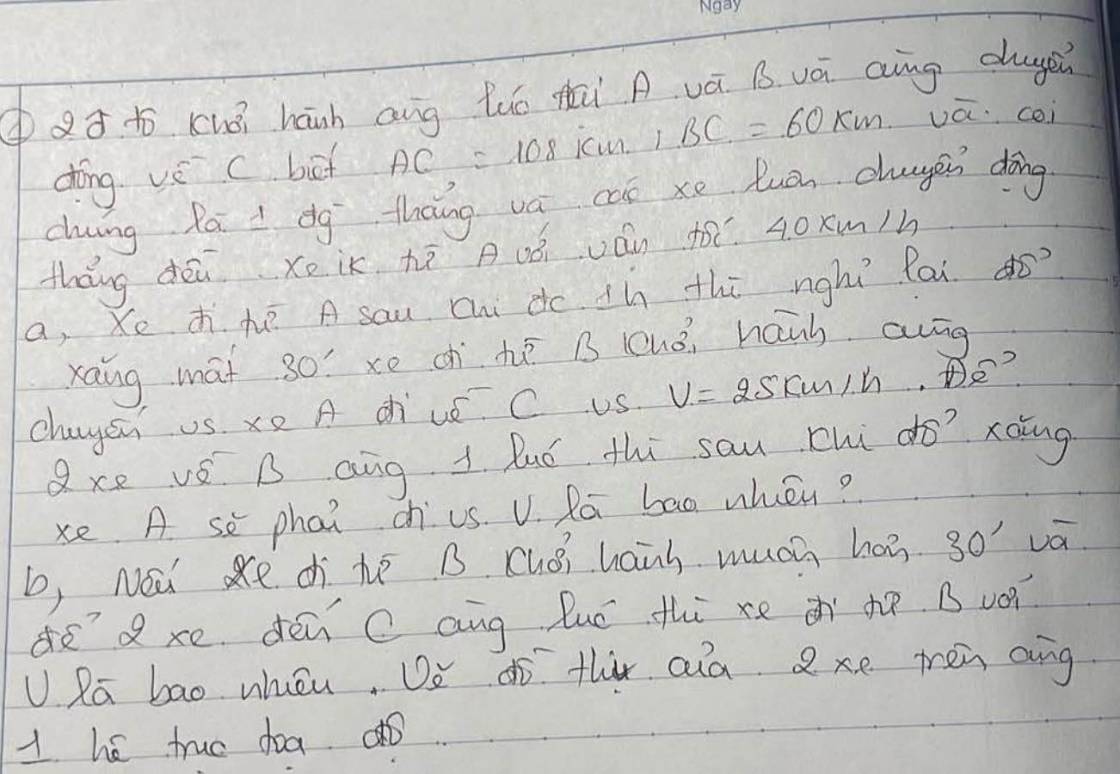 Ngày
① 2 ô tô khởi hành cùng lúc tại A và B và cùng chuyển
động về C biết AC = 108 km, BC = 60 km và coi
chúng là 1 đg thẳng và các xe luôn chuyển động
thẳng đều. Xe từ A với vận tốc 40 km/h
a, Xe đi từ A sau khi đc 1h thì nghỉ lại đổ
xăng mất 30' xe đi từ B khởi hành cùng
chuyến vs xe A đi về C vs V = 25 km/h. Để
2 xe về B cùng 1 lúc thì sau khi đổ xăng
xe A sẽ phải đi vs V là bao nhiêu?
b, Nếu xe đi từ B khởi hành muộn hơn 30' và
để 2 xe đến C cùng lúc thì xe đi từ B với
V là bao nhiêu. Vẽ đồ thị của 2 xe trên cùng
1 hệ trục tọa độ